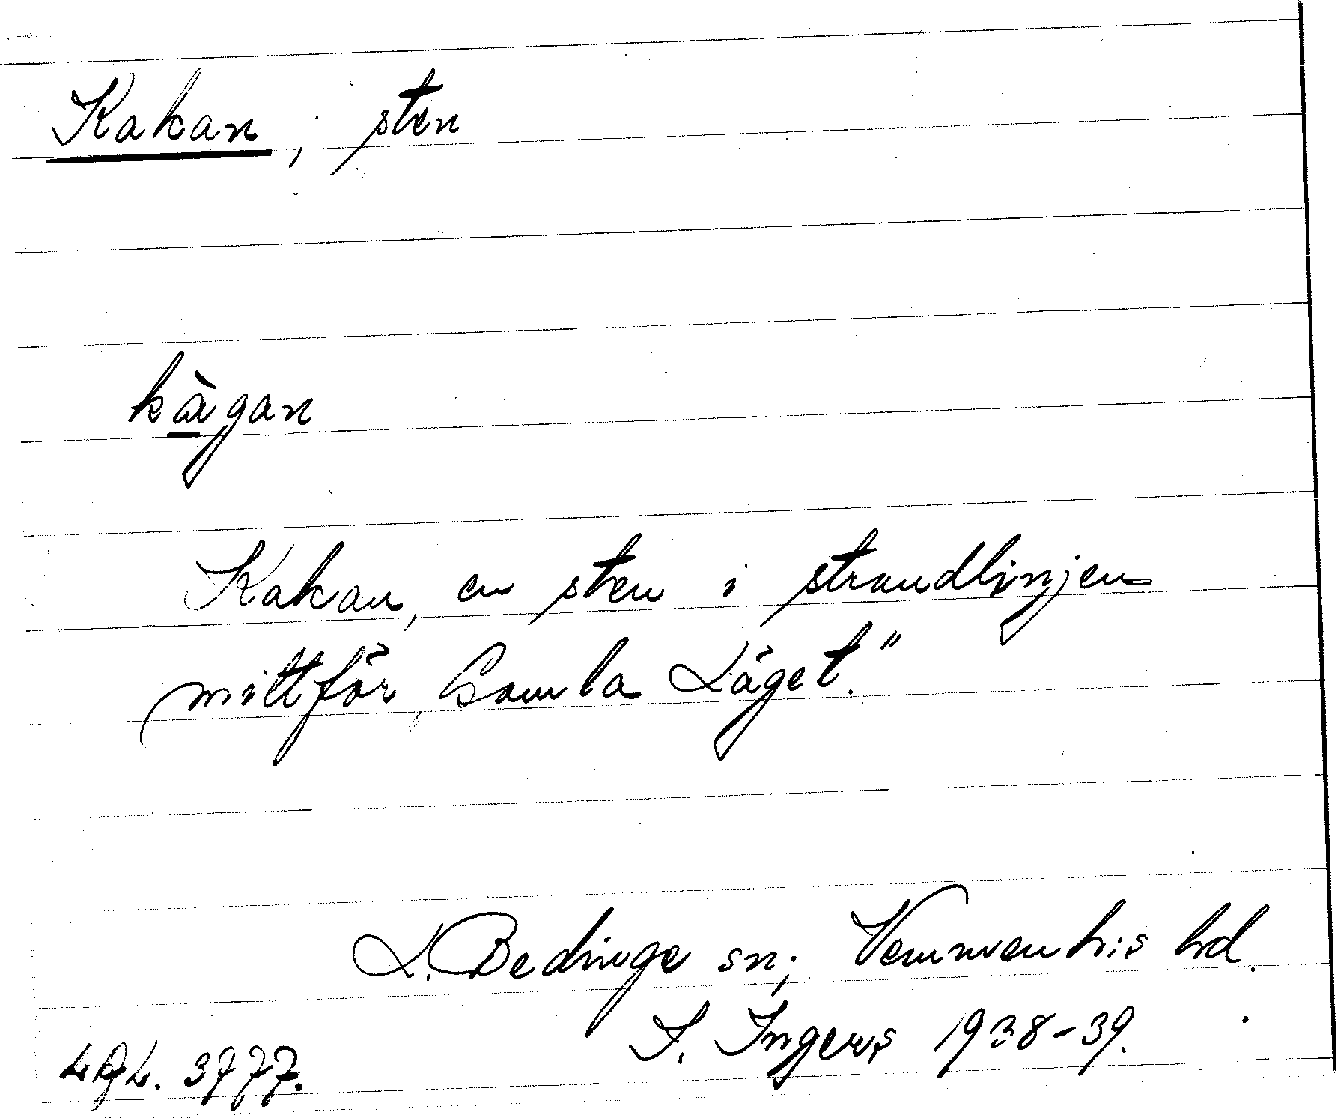 Kakan, sten
kàgan
Kakan, en sten i strandlinjen
mittför „Gamla Läget."
L. Bedinge sn; Vemmenhis hd.
I. Ingers 1938-39.
3777.